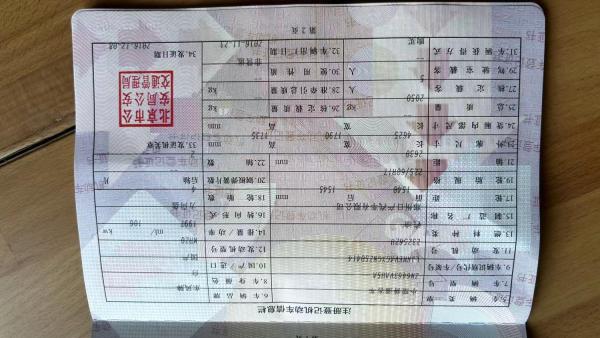 注册登记机动车信息栏
5. 车辆类型 小型普通客车 6. 车辆品牌 东风牌
7. 车辆型号 8. 车身颜色 白
9. 车辆识别代号/车架号 10. 国产/进口 国产
11. 发动机号 12. 发动机型号
13. 燃料种类 汽油 14. 排量/功率 1997 ml/ 106 kw
15. 制造厂名称 郑州日产汽车有限公司 16. 转向形式 方向盘
17. 轮距 前 1540 后 1545 mm 18. 轮胎数 4
19. 轮胎规格 225/60R17 20. 钢板弹簧片数 后轴 片
21. 轴距 2630 mm 22. 轴数 2
23. 外廓尺寸 长 4625 宽 1790 高 1735 mm
24. 货厢内部尺寸 长 宽 高 mm
25. 总质量 2030 kg 26. 核定载质量 kg
27. 核定载客 5 人 28. 准牵引总质量 kg
29. 驾驶室载客 人 30. 使用性质 非营运
31. 车辆获得方式 购买 32. 车辆出厂日期 2016-11-21
33. 发证机关章
北京市公
安局公安
交通管理局
34. 发证日期 2016-12-08
第 2 页